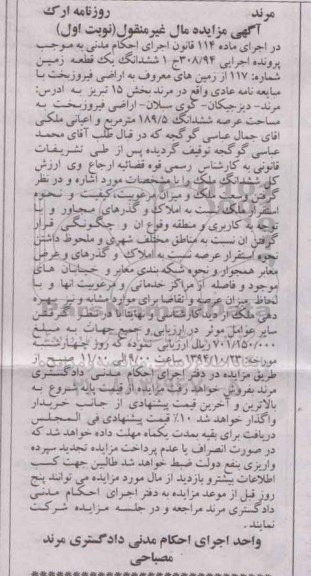 مرند روزنامه ارک
آگهی مزایده مال غیرمنقول(نوبت اول)
در اجرای ماده ۱۱۴ قانون اجرای احکام مدنی به موجب
پرونده اجرایی ۳۰۸/۹۴ج ۱ ششدانگ یک قطعه زمین
شماره: ۱۱۷ از زمین های معروف به اراضی فیروزبخت با
مبایعه نامه عادی واقع در مرند بخش ۱۵ تبریز به ادرس:
مرند- دیزجیکان- کوی سبلان- اراضی فیروزبخت به
مساحت عرصه ششدانگ ۱۸۹/۵ مترمربع و اعیانی ملکی
اقای جمال عباسی گوگجه که در قبال طلب آقای محمد
عباسی گوگجه توقیف گردیده پس از طی تشریفات
قانونی به کارشناس رسمی قوه قضائیه ارجاع وی ارزش
کل ششدانگ ملک را با مشخصات مورد اشاره و در نظر
گرفتن وسعت ملک و میزان مرغوبیت، کیفیت و نحوه
استقرار ملک نسبت به املاک و گذرهای مجاور و با
توجه به کاربری و منطقه وقوع ان و چگونگی قرار
گرفتن ان نسبت به مناطق مختلف شهری و ملحوظ داشتن
نحوه استقرار عرصه نسبت به املاک و گذرهای و عرض
معابر همجوار و نحوه شبکه بندی معابر و خیابان های
موجود و فاصله از مراکز خدماتی و مرغوبیت انها و با
لحاظ میزان عرصه و تقاضا برای موارد مشابه و نیز بهره
دهی ملک از دید کارشناسی و نهایتا با در نظر گرفتن
سایر عوامل موثر در ارزیابی و جمیع جهات به مبلغ
۷۰۱/۱۵۰/۰۰۰ ریال ارزیابی نموده که روز چهارشنبه
مورخه: ۱۳۹۴/۱۰/۲۳ ساعت ۹/۰۰ الی ۱۱/۰۰ صبح از
طریق مزایده در دفتر اجرای احکام مدنی دادگستری
مرند بفروش خواهد رفت مزایده از قیمت پایه شروع به
بالاترین و آخرین قیمت پیشنهادی از جانب خریدار
واگذار خواهد شد ۱۰٪ قیمت پیشنهادی فی المجلس
دریافت برای بقیه بمدت یکماه مهلت داده خواهد شد که
در صورت انصراف یا عدم پرداخت مزایده تجدید سپرده
واریزی بنفع دولت ضبط خواهد شد طالبین جهت کسب
اطلاعات بیشتر و بازدید از مال مورد مزایده می توانند پنج
روز قبل از موعد مزایده به دفتر اجرای احکام مدنی
دادگستری مرند مراجعه و در جلسه مزایده شرکت
نمایند.
واحد اجرای احکام مدنی دادگستری مرند
مصباحی